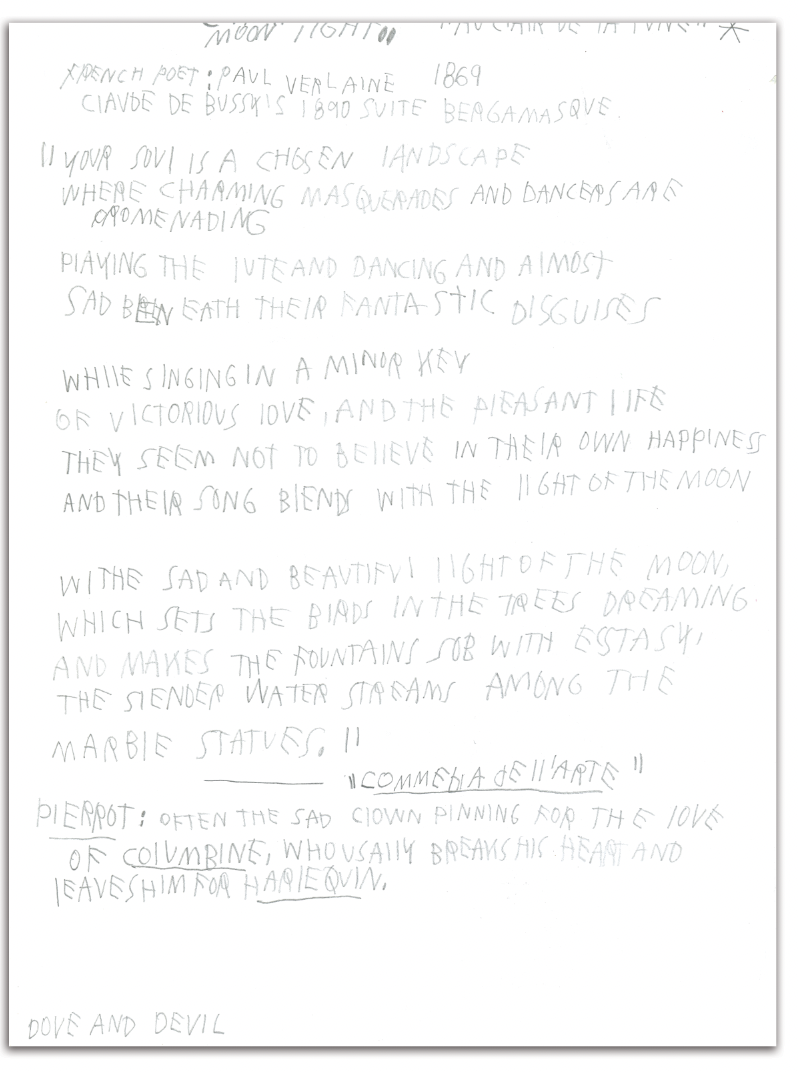 MOON LIGHT
FRENCH POET: PAUL VERLAINE 1869
CLAUDE DE BUSSY'S 1890 SUITE BERGAMASQUE.
"YOUR SOUL IS A CHOSEN LANDSCAPE
WHERE CHARMING MASQUERADES AND DANCERS ARE
PROMENADING
PLAYING THE LUTE AND DANCING AND ALMOST
SAD BENEATH THEIR FANTASTIC DISGUISES
WHILE SINGING IN A MINOR KEY
OF VICTORIOUS LOVE, AND THE PLEASANT LIFE
THEY SEEM NOT TO BELIEVE IN THEIR OWN HAPPINESS
AND THEIR SONG BLENDS WITH THE LIGHT OF THE MOON
WITHE SAD AND BEAUTIFUL LIGHT OF THE MOON,
WHICH SETS THE BIRDS IN THE TREES DREAMING.
AND MAKES THE FOUNTAINS SOB WITH ESTASY,
THE SLENDER WATER STREAMS AMONG THE
MARBLE STATUES."
"COMMEDIA dELL'ARTE"
PIERROT: OFTEN THE SAD CLOWN PINNING FOR THE LOVE
OF COLUMBINE, WHO USALLY BREAKS HIS HEART AND
LEAVES HIM FOR HARLEQUIN.
DOVE AND DEVIL